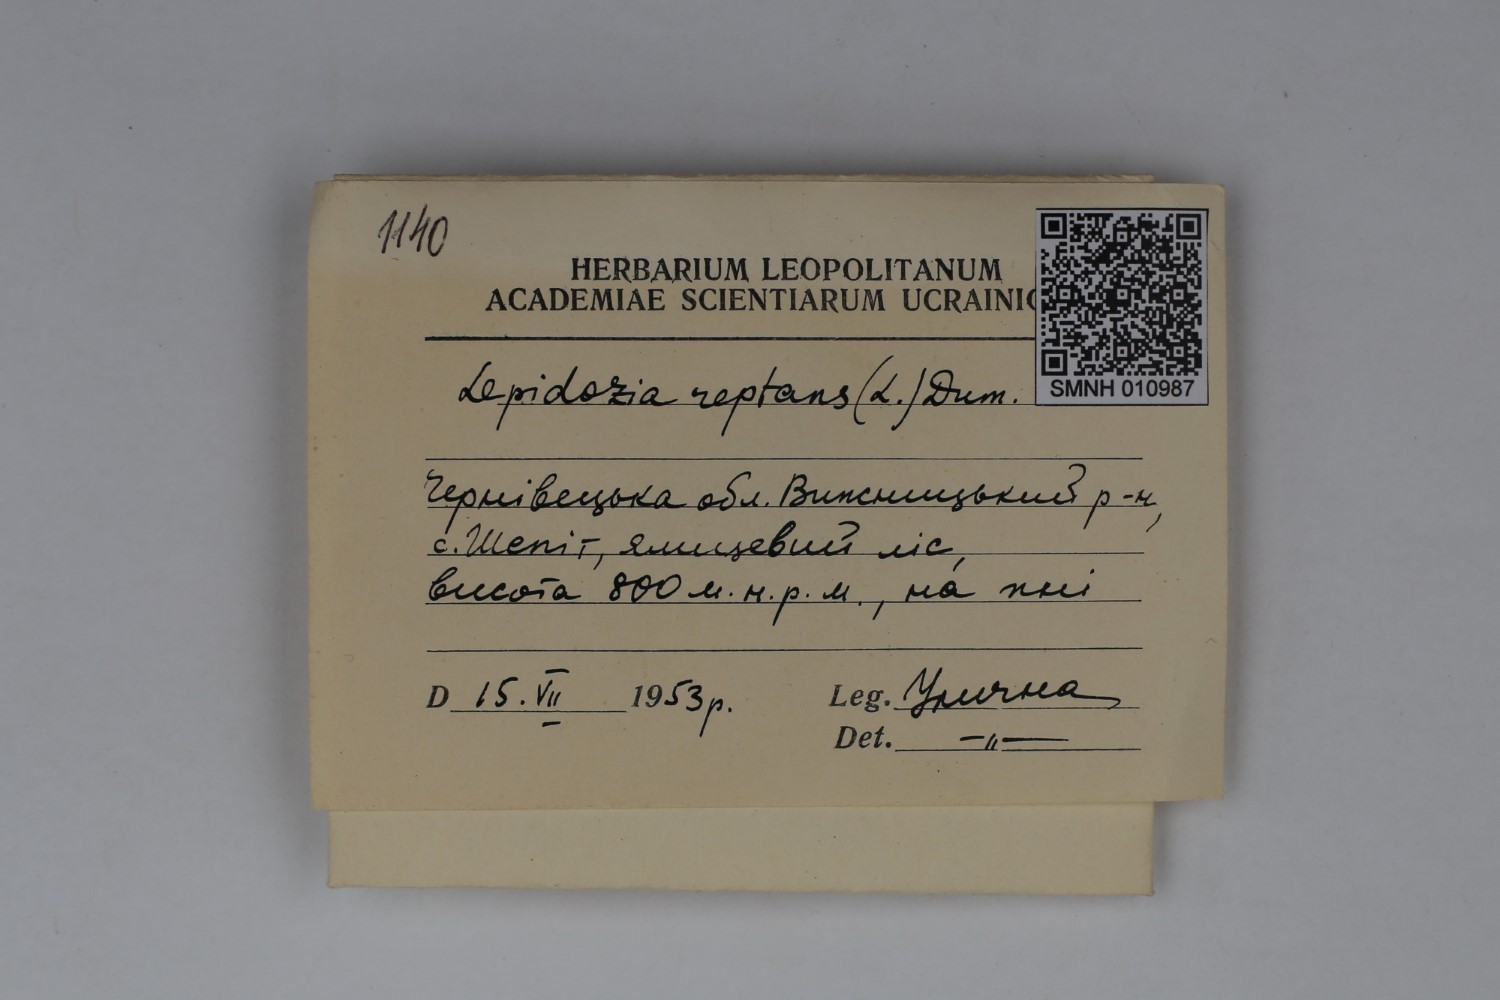 1140
HERBARIUM LEOPOLITANUM
ACADEMIAE SCIENTIARUM UCRAINIC
SMNH 010987
Lepidozia reptans (L.) Dum.
Чернівецька обл. Вижницький р-н,
с. Шепіт, ялицевий ліс,
висота 800 м. н. р. м., на пні
D 15. VII 1953 р.
Leg. Улична
Det. —"—